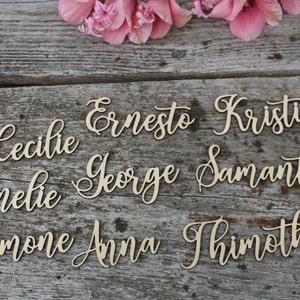 Ernesto Kristi
Cecilie
George Samant
melie
imone Anna Thimoth